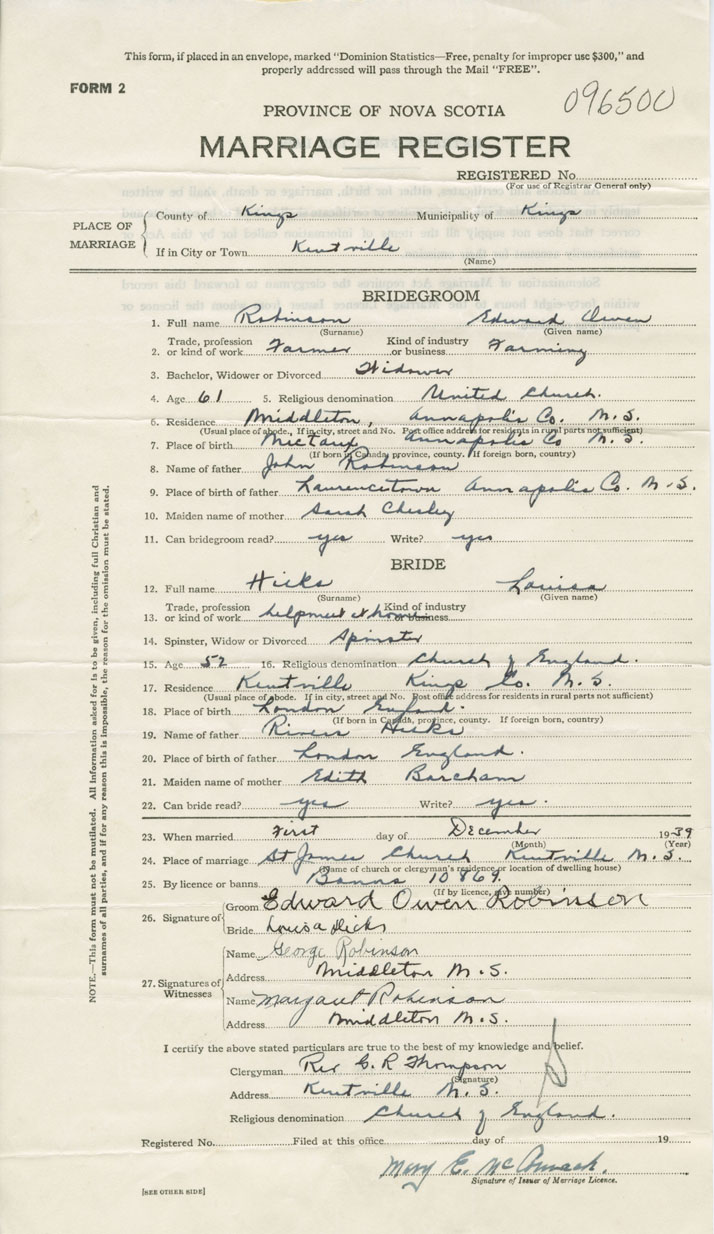 This form, if placed in an envelope, marked "Dominion Statistics—Free, penalty for improper use $300," and
properly addressed will pass through the Mail "FREE".
FORM 2
096500
PROVINCE OF NOVA SCOTIA
MARRIAGE REGISTER
REGISTERED No.
(For use of Registrar General only)
PLACE OF MARRIAGE
County of Kings Municipality of Kings
If in City or Town Kentville
(Name)
BRIDEGROOM
1. Full name Robinson Edward Owen
(Surname) (Given name)
2. Trade, profession or kind of work Farmer Kind of industry or business Farming
3. Bachelor, Widower or Divorced Widower
4. Age 61 5. Religious denomination United Church.
6. Residence Middleton, Annapolis Co. N.S.
(Usual place of abode. If in city, street and No. Post office address for residents in rural parts not sufficient)
7. Place of birth Nictaux Annapolis Co N.S.
(If born in Canada, province, county. If foreign born, country)
8. Name of father John Robinson
9. Place of birth of father Laurencetown Annapolis Co. N.S.
10. Maiden name of mother Sarah Chesley
11. Can bridegroom read? yes Write? yes
BRIDE
12. Full name Hicks Louisa
(Surname) (Given name)
13. Trade, profession or kind of work helpmeet at home Kind of industry or business
14. Spinster, Widow or Divorced Spinster
15. Age 52 16. Religious denomination Church of England.
17. Residence Kentville Kings Co. N.S.
(Usual place of abode. If in city, street and No. Post office address for residents in rural parts not sufficient)
18. Place of birth London England.
(If born in Canada, province, county. If foreign born, country)
19. Name of father Rivers Hicks
20. Place of birth of father London England.
21. Maiden name of mother Edith Barcham
22. Can bride read? yes Write? yes.
23. When married First day of December 1939
(Month) (Year)
24. Place of marriage St James Church Kentville N.S.
(Name of church or clergyman's residence or location of dwelling house)
25. By licence or banns Banns 10869.
(If by licence, give number)
26. Signature of
Groom Edward Owen Robinson
Bride Louisa Hicks
27. Signatures of Witnesses
Name George Robinson
Address Middleton N.S.
Name Margaret Robinson
Address Middleton N.S.
I certify the above stated particulars are true to the best of my knowledge and belief.
Clergyman Rev G. R Thompson
(Signature)
Address Kentville N.S.
Religious denomination Church of England.
Registered No. Filed at this office day of 19
Mary E. McCormack.
Signature of Issuer of Marriage Licence.
[SEE OTHER SIDE]
NOTE.—This form must not be mutilated. All information asked for is to be given, including full Christian and
surnames of all parties, and if for any reason this is impossible, the reason for the omission must be stated.